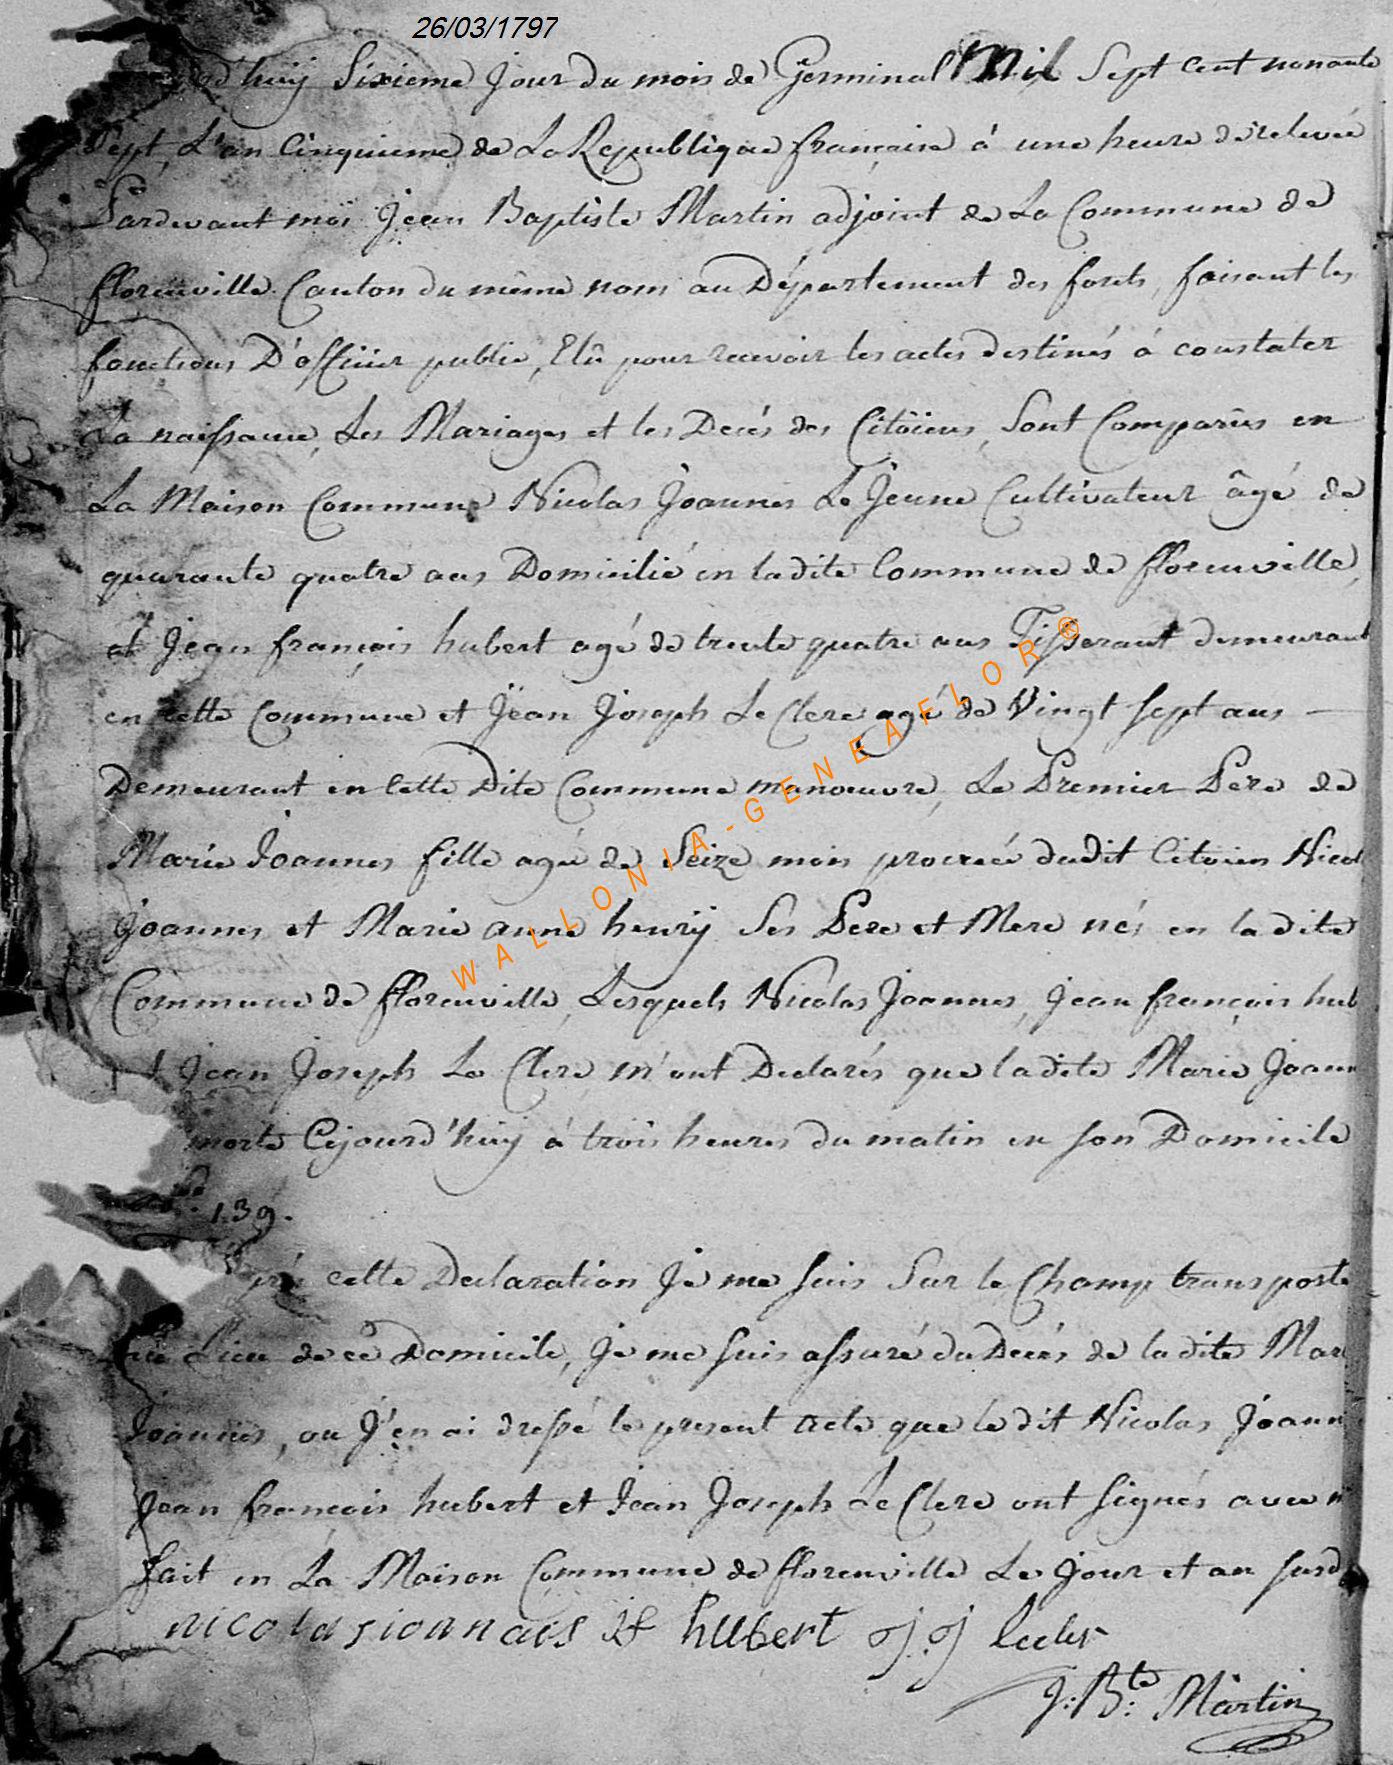 26/03/1797
d'huij Sixieme Jour du mois de Germinal Mil Sept cent nonante
Sept, L'an Cinquieme de La Republique francaise à une heure de relevée
Pardevant moi Jean Baptiste Martin adjoint de La Commune de
fflorenville Canton du même nom au Département des forets, faisant les
fonctions D'officier public, Elû pour recevoir les actes destinés à constater
La naissance, Les Mariages et les Decés des Citöiens, Sont Comparûs en
La Maison Commune Nicolas Joannes Le Jeune Cultivateur âgé de
quarante quatre ans Domicilié en ladite Commune de fflorenville,
et Jean françois hubert agé de trente quatre ans Tisserant demeurant
en cette Commune et Jean Joseph Le Clere agé de Vingt sept ans —
Demeurant en Cette Dite Commune manoeuvre, Le Premier Pere de
Marie Joannes fille agée de Seize mois procreée dudit Citoien Nicol
Joannes et Marie anne henrÿ Ses Pere et Mere nés en la dite
Commune de fflorenville, Lesquels Nicolas Joannes, Jean françois hub
t Jean Joseph Le Clere m'ont Declarés que ladite Marie Joann
morte Cejourd'huij à trois heures du matin en son Domicile
139.
près cette Declaration Je me suis Sur le Champ transporté
au Lieu de ce Domicile, Je me suis assuré du Decés de la dite Mar
Joannes, ou J'en ai dressé le present acte que le dit Nicolas Joann
Jean francois hubert et Jean Joseph Le Clere ont signés avec m
fait en La Maison Commune de fflorenville Le Jour et an susd
nicolas jionnais JF hubert J.J lecler
J: Bte: Martin
WALLONIA-GENEAFLOR®